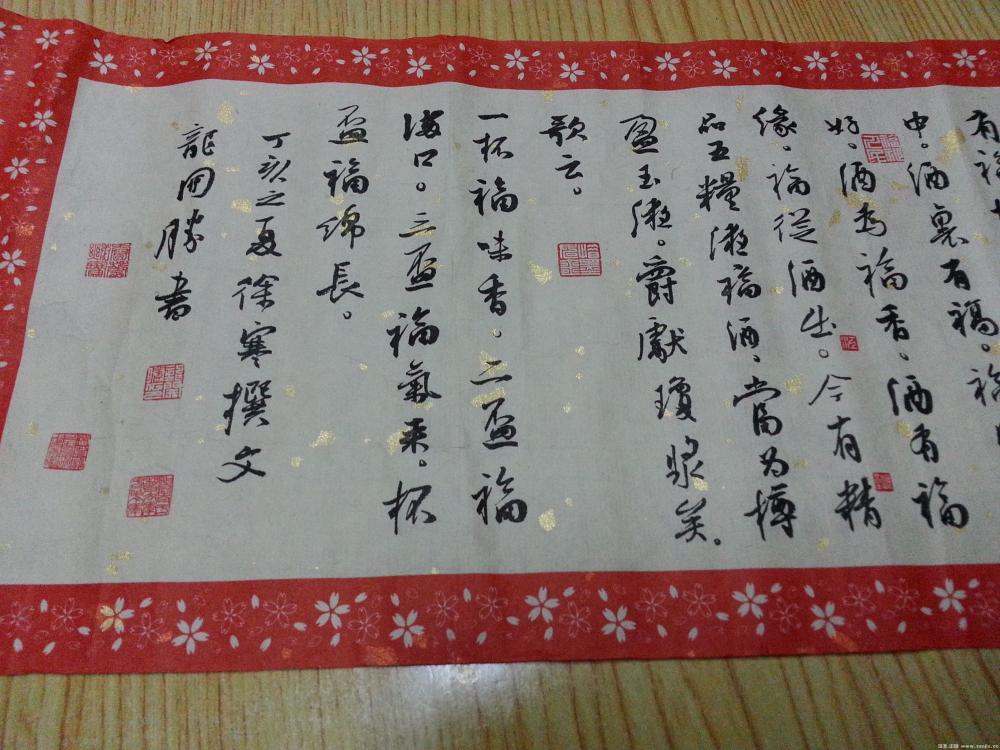 有福
中。酒裏有福。福
好。酒為福香。酒有福
緣。福從酒生。今有精
品五糧液福酒、當為樽
盈玉液。爵獻瓊漿矣。
歌云。
一杯福味香。二盃福
海口。三盃福氣來。杯
盃福綿長。
丁亥之夏徐寒撰文
龍開勝書